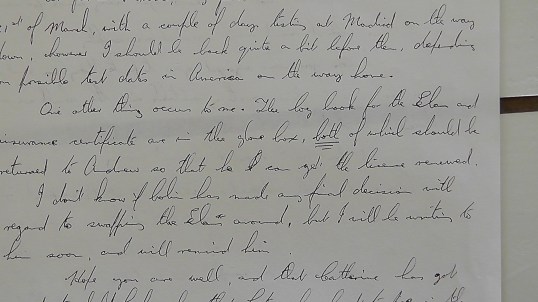 1st of March, with a couple of days testing at Madrid on the way
down, however I should be back quite a bit before then, depending
on possible test dates in America on the way home.
One other thing occurs to me. The log book for the Elan and
insurance certificate are in the glove box, both of which should be
returned to Andrew so that he can get the license renewed.
I don't know if Colin has made any final decision with
regard to swapping the Elan around, but I will be writing to
him soon, and will remind him.
Hope you are well, and that Catherine has got